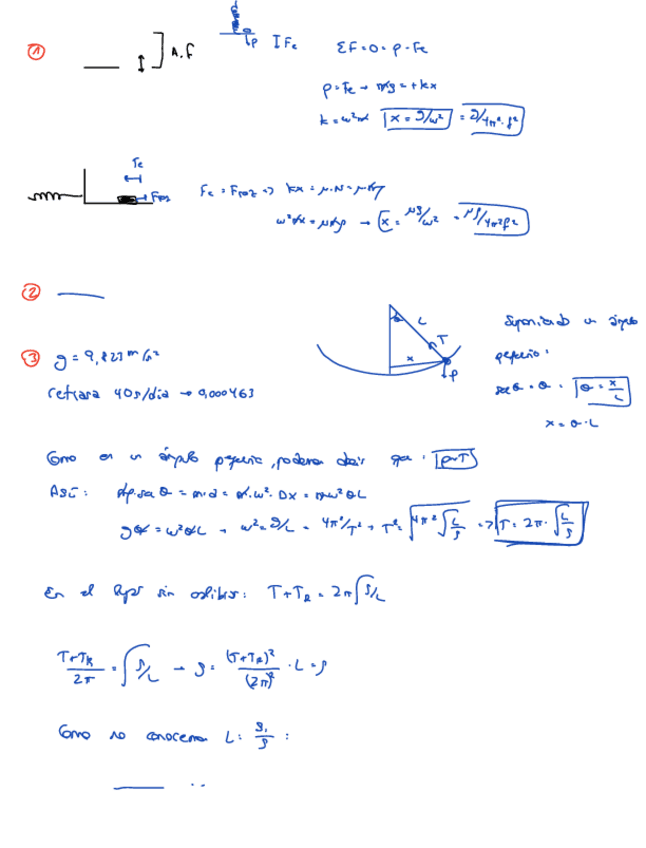 ① A.f
P I Fe ΣF=0= P - Fe
P = Fe → mg = +kx
k = ω²m x = g/ω² = g/4π²·f²
Fe
Fe = Froz => kx = μ·N = μmg
ω²mx = μmg → x = μg/ω² = μg/4π²f²
②
③ g = 9,823 m/s²
retrasa 40s/día → 0,000463
L T x P
Suponiendo un ángulo
pequeño:
sen θ = θ = θ = x/L
x = θ·L
Como es un ángulo pequeño, podemos decir que: P=T
Así: mg·sen θ = m·a = m·ω²·Dx = mω²θL
gθ = ω²θL → ω² = g/L = 4π²/T² → T² = 4π² √L/g => T = 2π·√L/g
En el sin T+TR = 2π√g/L
T+TR/2π = √g/L → g = (T+TR)²/(2π)² · L = g
Como no conocemos L: